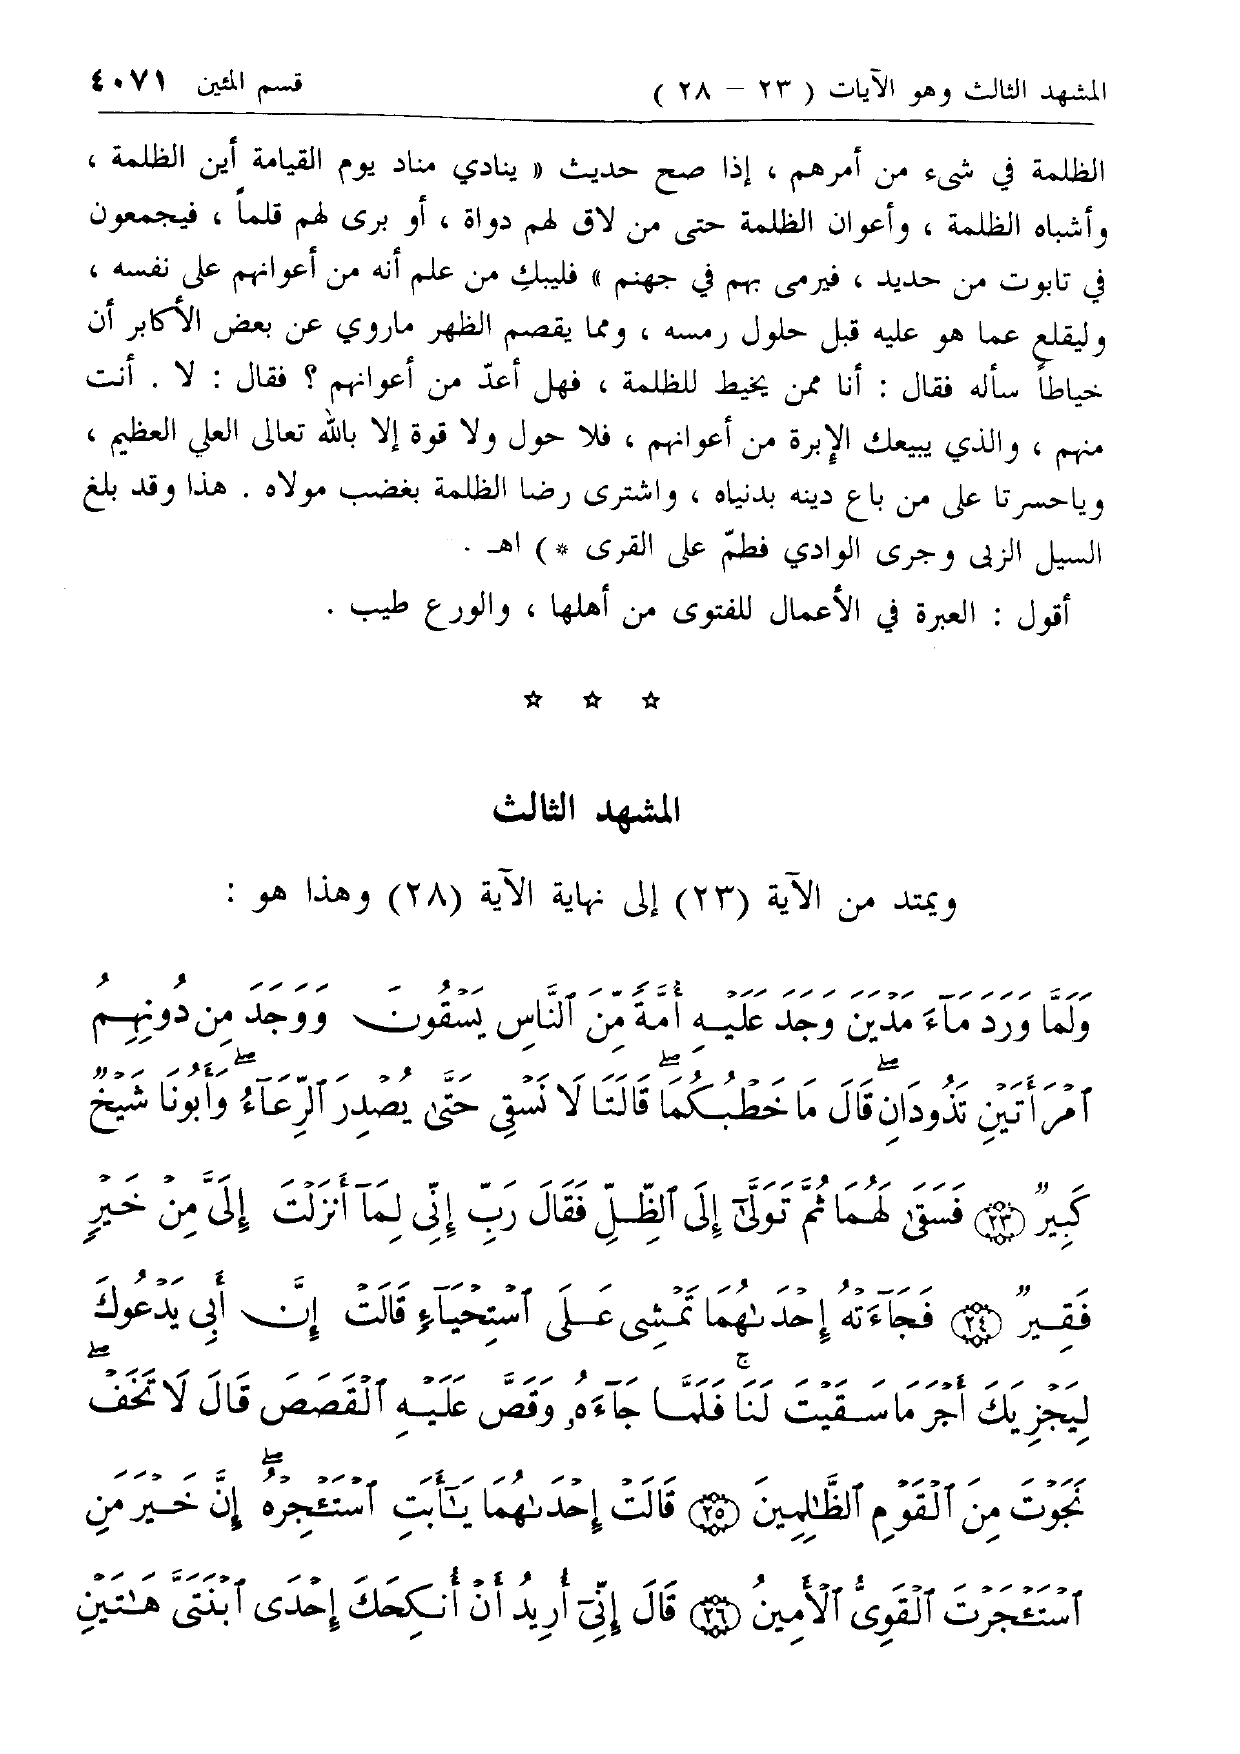 المشهد الثالث وهو الآيات ( ٢٣ – ٢٨ ) قسم المئين ٤٠٧١
الظلمة في شيء من أمرهم ، إذا صح حديث « ينادي مناد يوم القيامة أين الظلمة ،
وأشباه الظلمة ، وأعوان الظلمة حتى من لاق لهم دواة ، أو برى لهم قلماً ، فيجمعون
في تابوت من حديد ، فيرمى بهم في جهنم » فليبكِ من علم أنه من أعوانهم على نفسه ،
وليقلع عما هو عليه قبل حلول رمسه ، ومما يقصم الظهر ماروي عن بعض الأكابر أن
خياطاً سأله فقال : أنا ممن يخيط للظلمة ، فهل أعدّ من أعوانهم ؟ فقال : لا . أنت
منهم ، والذي يبيعك الإبرة من أعوانهم ، فلا حول ولا قوة إلا بالله تعالى العلي العظيم ،
وياحسرتا على من باع دينه بدنياه ، واشترى رضا الظلمة بغضب مولاه . هذا وقد بلغ
السيل الزبى وجرى الوادي فطمّ على القرى * ) اهـ .
أقول : العبرة في الأعمال للفتوى من أهلها ، والورع طيب .
☆ ☆ ☆
المشهد الثالث
ويمتد من الآية (٢٣) إلى نهاية الآية (٢٨) وهذا هو :
وَلَمَّا وَرَدَ مَآءَ مَدْيَنَ وَجَدَ عَلَيْهِ أُمَّةً مِّنَ ٱلنَّاسِ يَسْقُونَ وَوَجَدَ مِن دُونِهِمُ
ٱمْرَأَتَيْنِ تَذُودَانِۖ قَالَ مَا خَطْبُكُمَاۖ قَالَتَا لَا نَسْقِى حَتَّىٰ يُصْدِرَ ٱلرِّعَآءُۖ وَأَبُونَا شَيْخٌ
كَبِيرٌ ٢٣ فَسَقَىٰ لَهُمَا ثُمَّ تَوَلَّىٰٓ إِلَى ٱلظِّلِّ فَقَالَ رَبِّ إِنِّى لِمَآ أَنزَلْتَ إِلَىَّ مِنْ خَيْرٍ
فَقِيرٌ ٢٤ فَجَآءَتْهُ إِحْدَىٰهُمَا تَمْشِى عَلَى ٱسْتِحْيَآءٍ قَالَتْ إِنَّ أَبِى يَدْعُوكَ
لِيَجْزِيَكَ أَجْرَ مَا سَقَيْتَ لَنَاۚ فَلَمَّا جَآءَهُۥ وَقَصَّ عَلَيْهِ ٱلْقَصَصَ قَالَ لَا تَخَفْۖ
نَجَوْتَ مِنَ ٱلْقَوْمِ ٱلظَّٰلِمِينَ ٢٥ قَالَتْ إِحْدَىٰهُمَا يَٰٓأَبَتِ ٱسْتَـْٔجِرْهُۖ إِنَّ خَيْرَ مَنِ
ٱسْتَـْٔجَرْتَ ٱلْقَوِىُّ ٱلْأَمِينُ ٢٦ قَالَ إِنِّىٓ أُرِيدُ أَنْ أُنكِحَكَ إِحْدَى ٱبْنَتَىَّ هَٰتَيْنِ